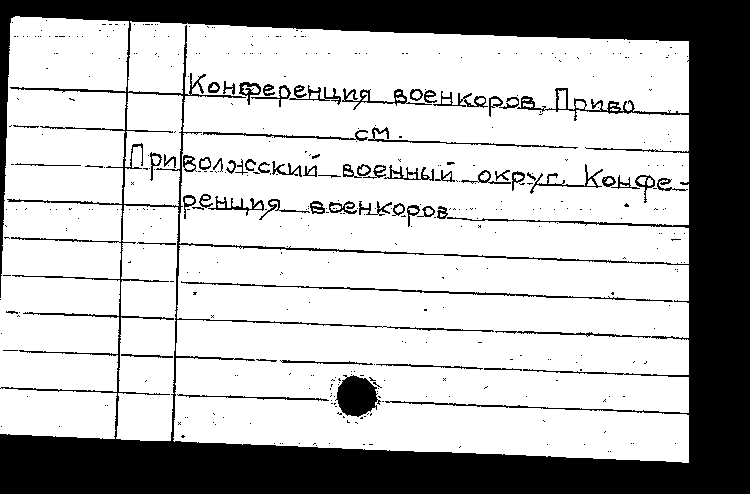 Конференция военкоров, Приво
см.
Приволжский военный округ. Конфе-
ренция военкоров